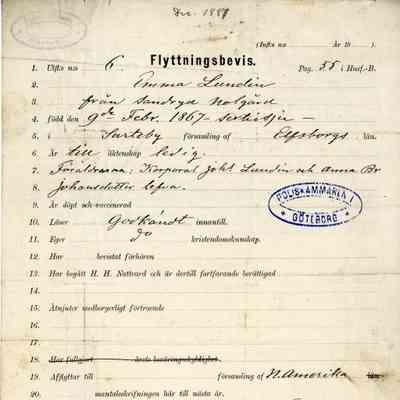 Dec. 1887
(Infts n:o År 18 ).
Utfts n:o 6. Flyttningsbevis. Pag. 55 i Husf.-B.
1.
2. Emma Lundin
3. från Sandryd Nolgård
4. född den 9de Febr. 1867 - sextisju -
5. i Tarteby församling af Elfsborgs län.
6. Är till äktenskap ledig.
7. Föräldrarna: Korporal Joh: Lundin och Anna Br
8. Johansdotter lefva.
9. Är döpt och vaccinerad
10. Läser Godkändt innantill.
11. Eger do kristendomskunskap.
12. Har bevistat förhören
13. Har begått H. H. Nattvard och är dertill fortfarande berättigad
14.
15. Åtnjuter medborgerligt förtroende
16.
17.
18. Har fullgjort årets beväringsskyldighet.
19. Afflyttar till församling af N. Amerika län.
20. mantalsskrifningen här till nästa år.
POLISKAMMAREN I
GÖTEBORG